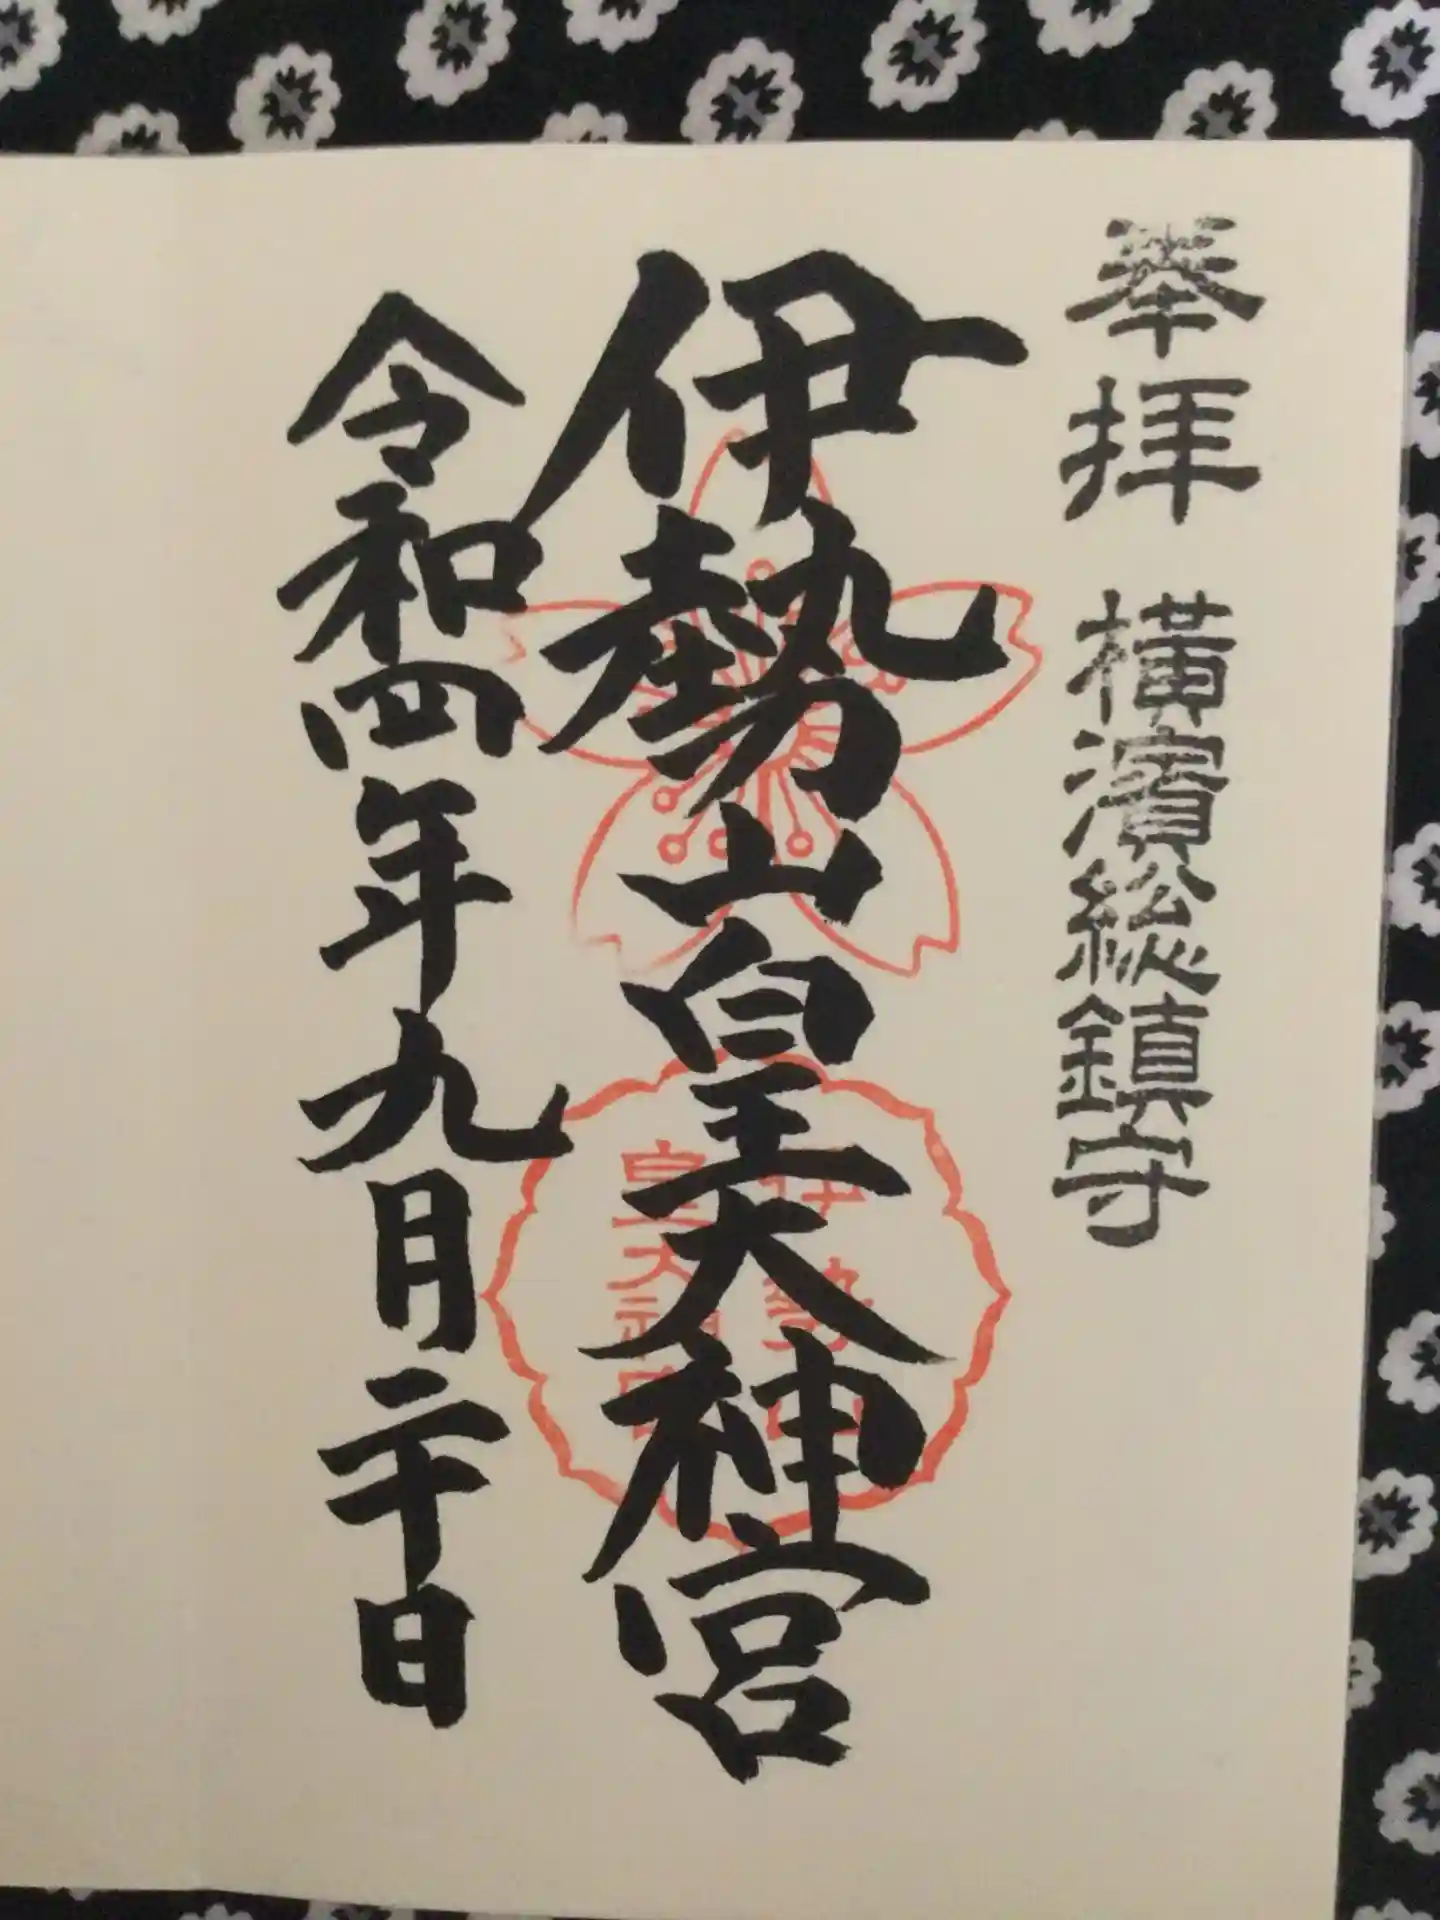 奉拝 横濱総鎮守
伊勢山皇大神宮
伊勢山
皇大神宮
令和四年九月二十日